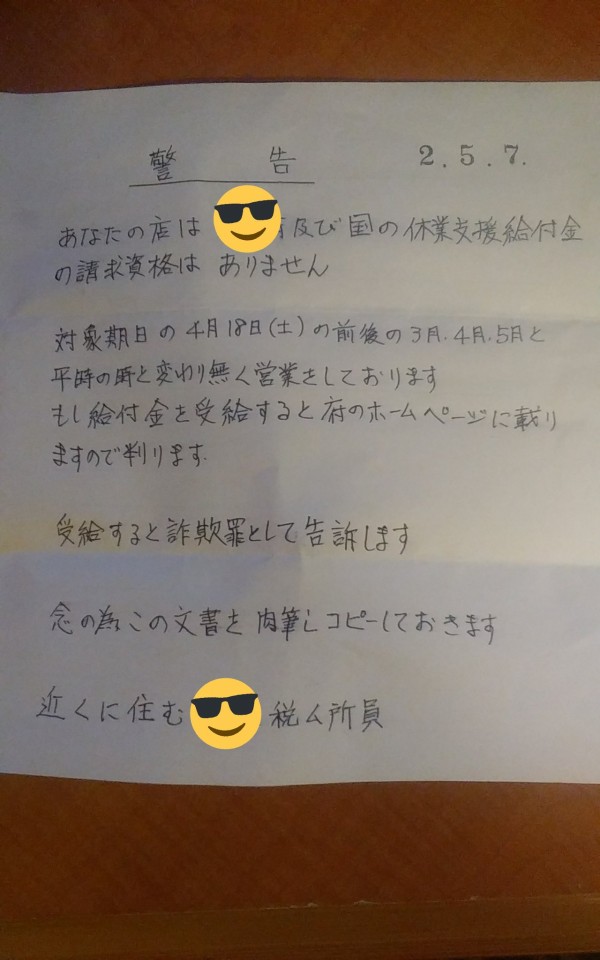 警告 2.5.7.
あなたの店は 及び国の休業支援給付金
の請求資格は ありません
対象期日の4月18日(土)の前後の3月.4月.5月と
平時の時と変わり無く営業をしております
もし給付金を受給すると府のホームページに載り
ますので判ります.
受給すると詐欺罪として告訴します
念の為この文書を肉筆しコピーしておきます
近くに住む 税ム所員